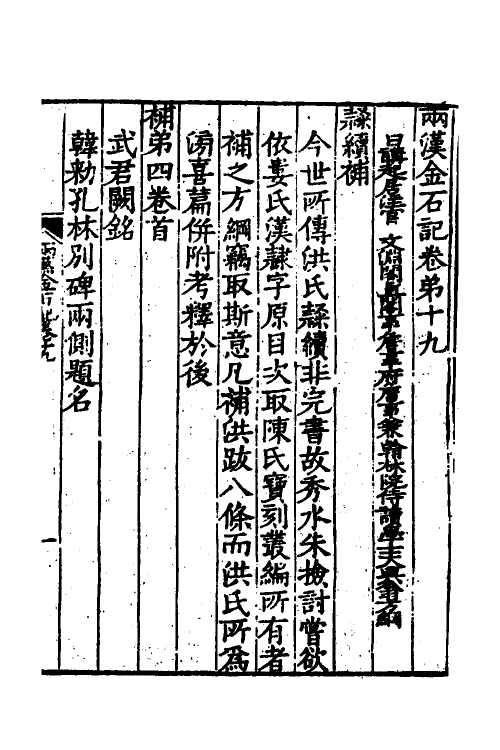 兩漢金石記卷弟十九
日講起居注官 文淵閣直閣事詹事府詹事兼翰林院侍讀學士大興翁方綱
隸續補
今世所傳洪氏隸續非完書故秀水朱檢討嘗欲
依婁氏漢隸字原目次取陳氏寶刻叢編所有者
補之方綱竊取斯意凡補洪跋八條而洪氏所爲
滂喜篇併附考釋於後
補弟四卷首
武君闕銘
韓勑孔林別碑兩側題名
兩漢金石記卷十九
一